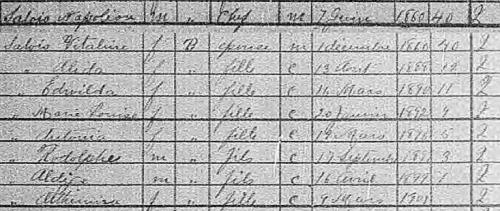 Salois Napoléon m " Chef m 7 Juin 1860 40 2
Salois Vitaline f B épouse m 1 décembre 1860 40 2
" Alida f " fille c 13 Août 1888 12 2
" Edwilda f " fille c 14 Mars 1890 11 2
" Marie Louise f " fille c 20 Janvier 1892 9 2
" Antonia f " fille c 19 Mars 5 2
" Rodolphe m " fils c 17 Septembre 3 2
" Aldéi m " fils c 16 Avril 1899 1 2
" f " fille c 9 Mars 1901 2